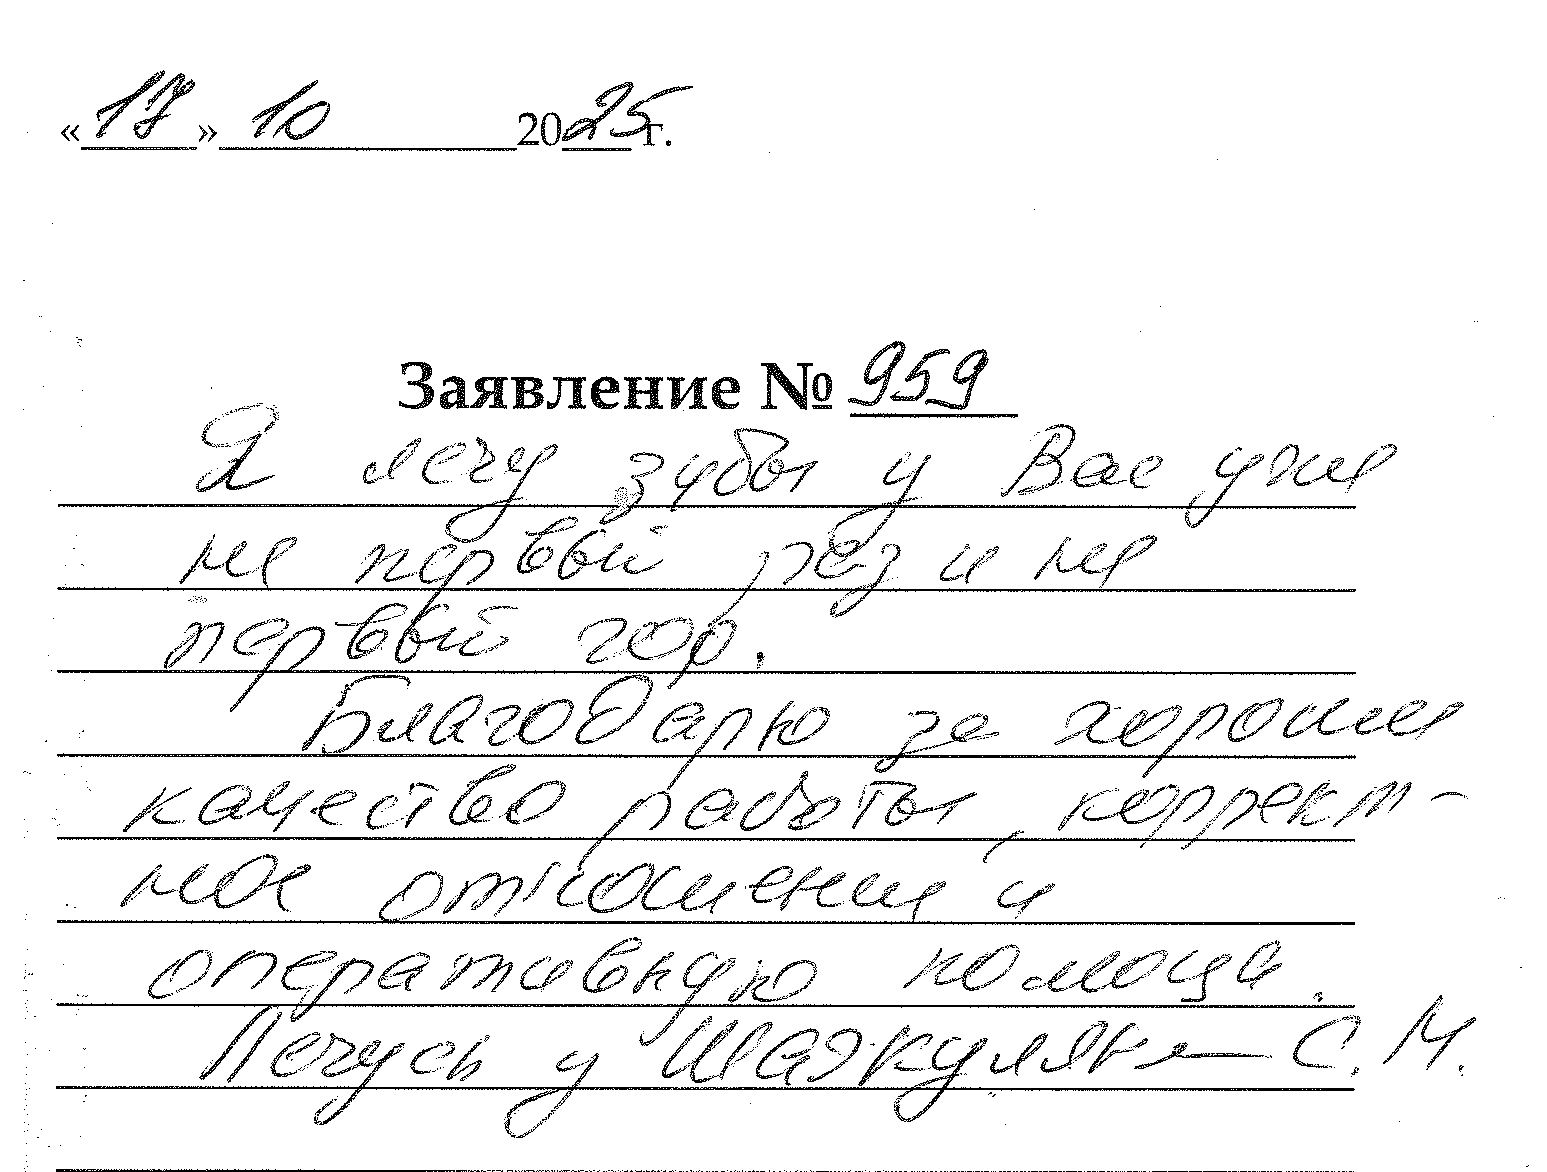 «17» 10 2025 г.
Заявление № 959
Я лечу зубы у Вас уже
не первый раз и не
первый год.
Благодарю за хорошее
качество работы, коррект-
ное отношение и
оперативную помощь.
Лечусь у С. М.